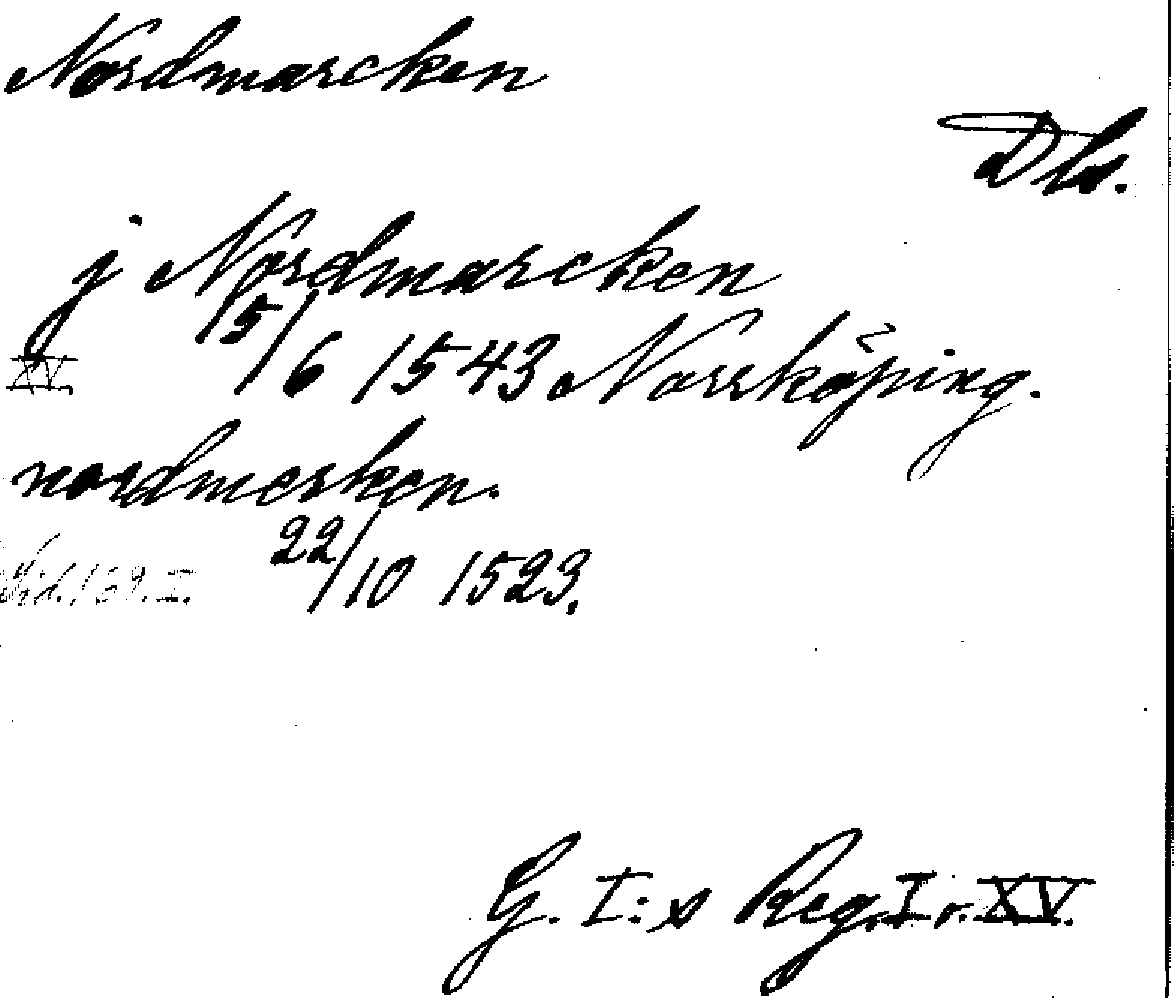 Nordmarcken
Dls.
j Nordmarcken
XV. 15/6 1543 Norrköping.
nordmerken.
Sid. 159. I. 22/10 1523.
G. I:s Reg. I o. XV.